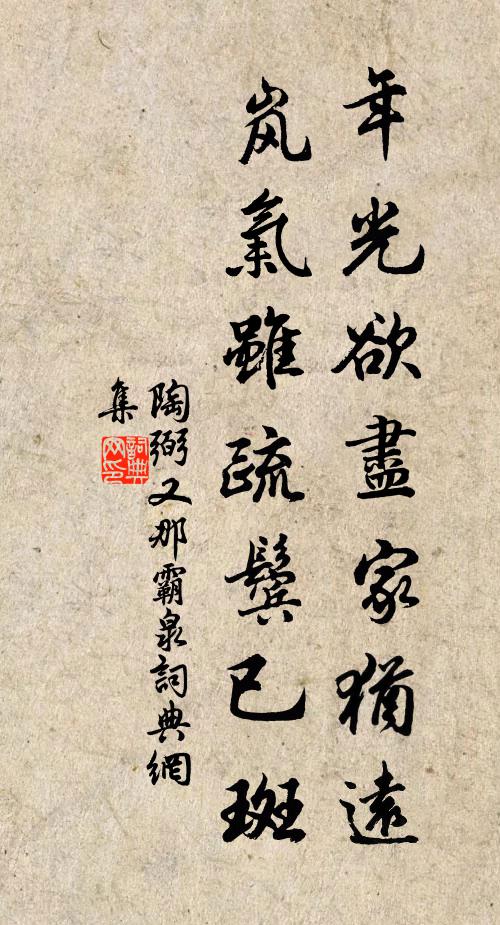 年光欲盡家猶遠
嵐氣雖疏鬢已斑
陶弼又那霸泉詞典網
集
詞典
网印